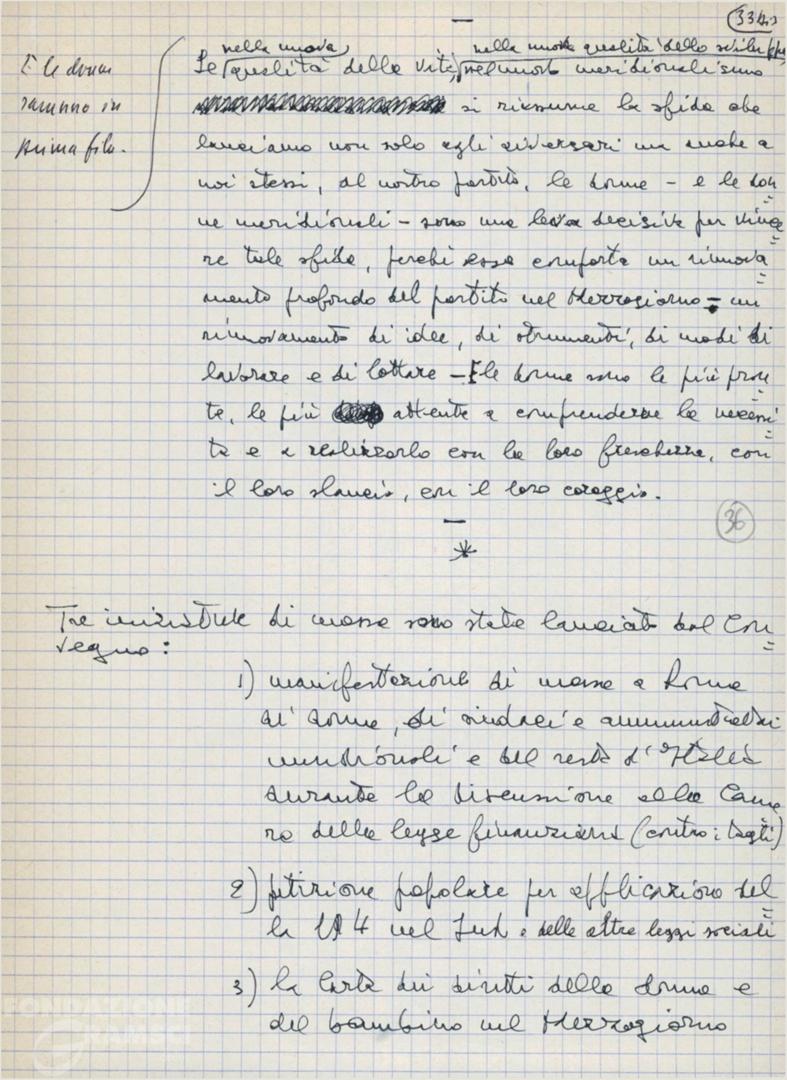 33 bis
nella nuova nella nuova qualità dello sviluppo
Se qualità della vita, nel nuovo meridionalismo
si riassume la sfida che
lanciamo non solo agli avversari ma anche a
noi stessi, al nostro partito, le donne – e le don
ne meridionali – sono una leva decisiva per vince
re tale sfida, perché essa comporta un rinnova
mento profondo del partito nel Mezzogiorno – un
rinnovamento di idee, di strumenti, di modi di
lavorare e di lottare – E le donne sono le più pron
te, le più attente a comprenderne la necessi
tà e a realizzarlo con la loro freschezza, con
il loro slancio, con il loro coraggio.
E le donne
saranno in
prima fila.
36
*
Tre iniziative di massa sono state lanciate dal Con
vegno:
1) manifestazione di massa a Roma
di donne, di sindaci e amministratori
meridionali e del resto d'Italia
durante la discussione alla Came
ra della legge finanziaria (contro i tagli)
2) petizione popolare per applicazione del
la 194 nel Sud e delle altre leggi sociali
3) la Carta dei diritti della donna e
del bambino nel Mezzogiorno
FONDAZIONE
GRAMSCI